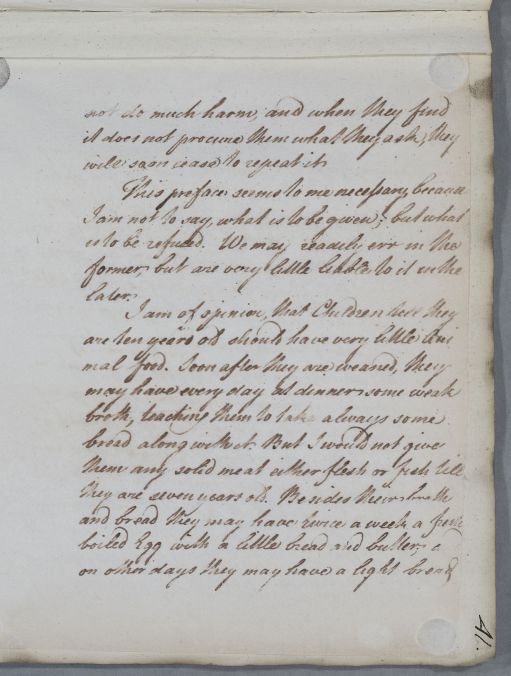 not do much harm, and when they find
it does not procure them what they ask, they
will soon cease to repeat it.
This preface seems to me necessary, because
I am not to say what is to be given; but what
is to be refused. We may readily err in the
former, but are very little liable to it in the
later.
I am of opinion, that Children till they
are ten years old should have very little Ani
mal food. Soon after they are weaned, they
may have every day at dinner some weak
broth, teaching them to take always some
bread along with it. But I would not give
them any solid meat either flesh or fish till
they are seven years old. Besides their broth
and bread they may have twice a week a
boiled Egg with a little bread and butter,
on other days they may have a light bread
41.